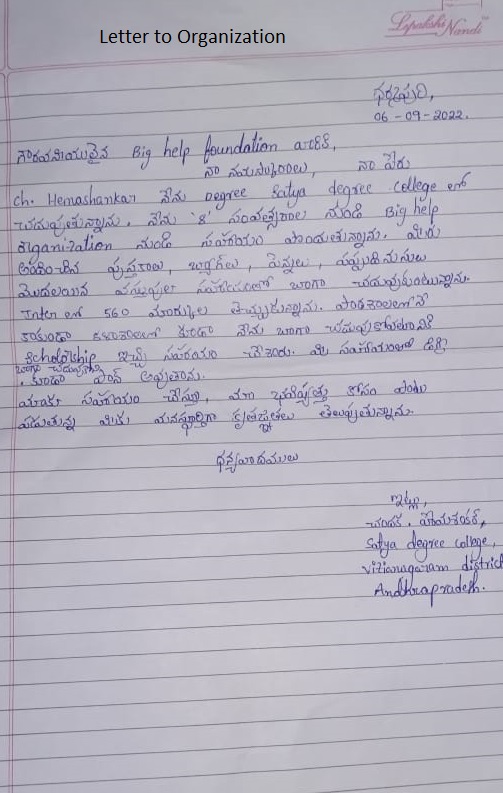 Lepakshi Nandi
Letter to Organization
ధర్మపురి,
06-09-2022.
గౌరవనీయులైన Big help foundation వారికి,
నా నమస్కారాలు, నా పేరు
ch. Hemashankar నేను Degree Satya degree college లో
చదువుతున్నాను. నేను '8' సంవత్సరాల నుండి Big help
organization నుండి సహాయం పొందుతున్నాను. మీరు
అందించిన పుస్తకాలు, బ్యాగ్‌లు, పెన్నులు,
మొదలయిన వస్తువుల సహాయంతో బాగా చదువుకుంటున్నాను.
Inter లో 560 మార్కులు తెచ్చుకున్నాను.
కాకుండా కూడా నేను బాగా చదువుకోవటానికి
Scholorship ఇచ్చి సహాయం చేశారు. మీ సహాయంతో డిగ్రీ
బాగా చదువుకొని
కూడా పాస్ అవుతాను.
మాకు సహాయం చేస్తూ, మా భవిష్యత్తు కోసం పాటు
పడుతున్న మీకు మనస్ఫూర్తిగా కృతజ్ఞతలు తెలుపుతున్నాను.
ధన్యవాదములు
ఇట్లు,
చందక. హేమశంకర్,
Satya degree college,
Vizianagaram district
Andhrapradesh.